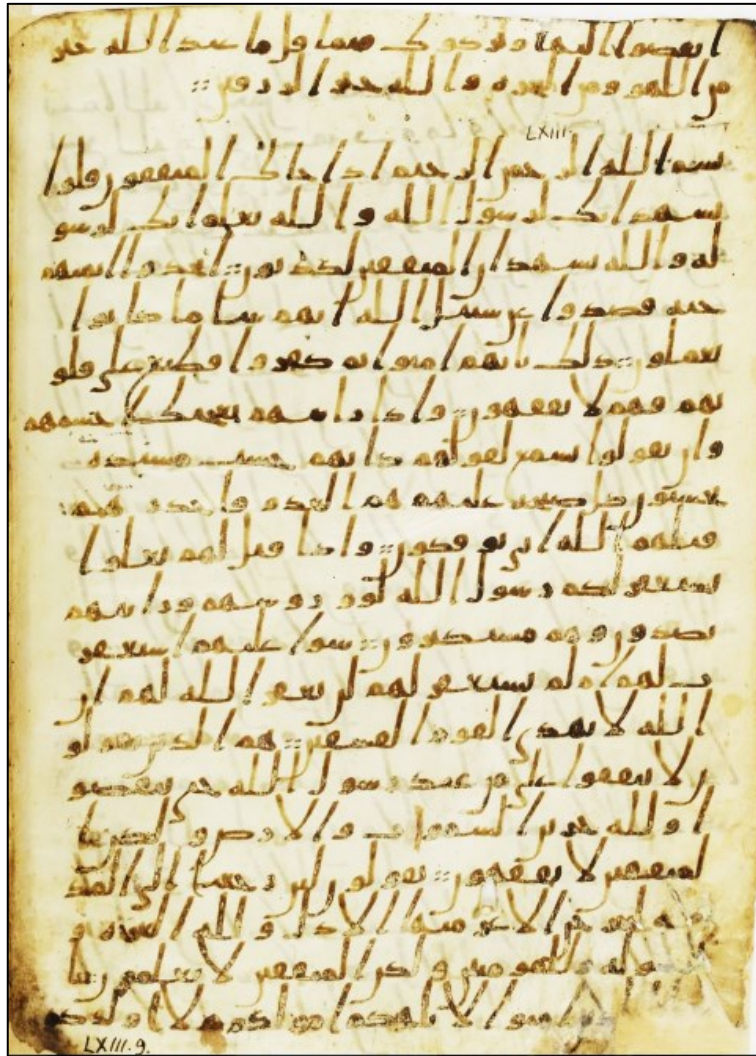 انفضوا اليها وتركوك قيما قل ما عند الله خير
من اللهو ومن التجره والله خير الرزقين
LXIII.
بسم الله الرحمن الرحيم اذا جاك المنفقون قلوا
نشهد انك لرسول الله والله يعلم انك لرسو
له والله يشهد ان المنفقين لكذبون اتخذوا ايمنهم
جنه فصدوا عن سبيل الله انهم سا ما كانوا
يعملون ذلك بانهم امنوا ثم كفروا فطبع على قلو
بهم فهم لا يفقهون واذا رايتهم تعجبك اجسمهم
وان يقولوا تسمع لقولهم كانهم خشب مسنده
يحسبون كل صيحه عليهم هم العدو فاحذرهم
قتلهم الله انى يوفكون واذا قيل لهم تعلوا
يستغفر لكم رسول الله لوو روسهم ورايتهم
يصدون وهم مستكبرون سوا عليهم استغفر
ت لهم ام لم تستغفر لهم لن يغفر الله لهم ان
الله لا يهدي القوم الفسقين هم الذين يقولو
ن لا تنفقوا على من عند رسول الله حتى ينفضو
ا ولله خزين السموات والارض ولكن ا
لمنفقين لا يفقهون يقولون لين رجعنا الى المد
ليخرجن الاعز منها الاذل ولله العزه و
لرسوله وللمومنين ولكن المنفقين لا يعلمون يا
امنوا لا تلهكم امولكم ولا اولدكم
LXIII. 9.